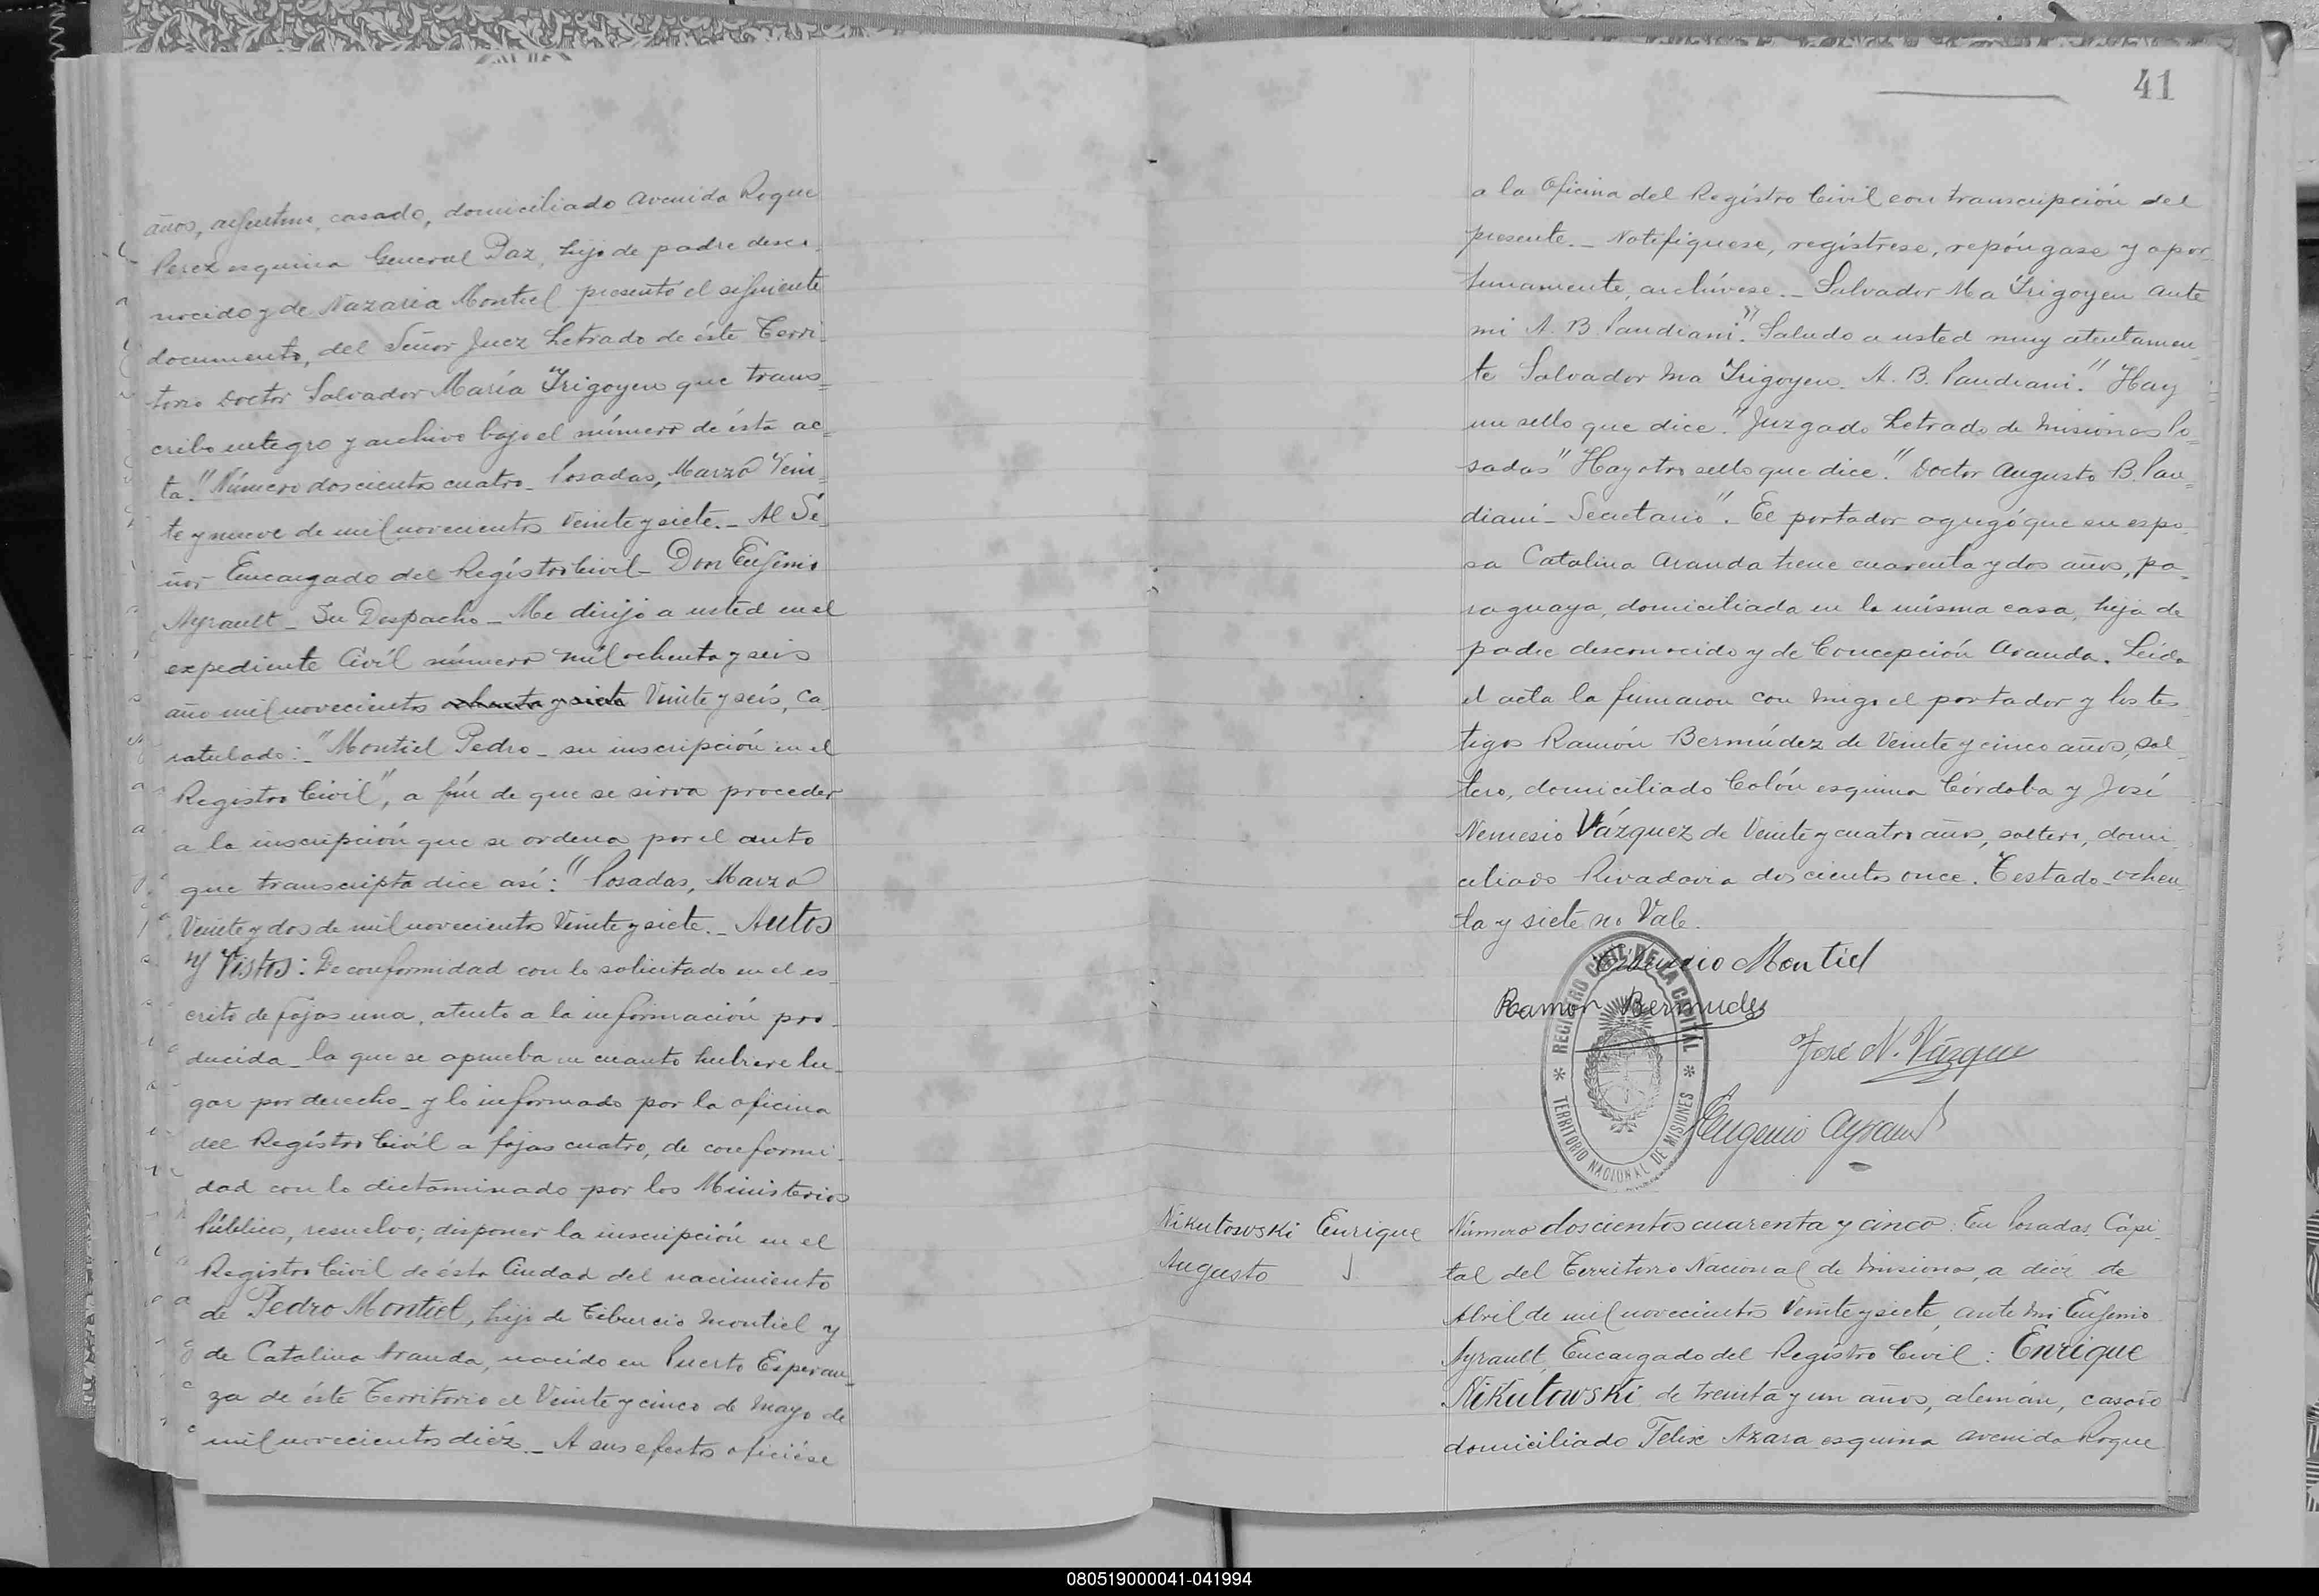 años, argentino, casado, domiciliado Avenida Roque
Perez esquina General Paz, hijo de padre desco-
nocido y de Nazaria Montiel presentó el siguiente
documento, del Señor Juez Letrado de éste Terri-
torio Doctor Salvador María Yrigoyen que trans=
cribo integro y archivo bajo el número de ésta ac=
ta. "Número doscientos cuatro_ Posadas, Marzo Vein=
te y nueve de mil novecientos Veinte y siete._ Al Se-
ñor Encargado del Regístro Civil_ Don Eugenio
Ayrault_ Su Despacho_ Me dirijo a usted en el
expediente Civíl número mil ochenta y seis
año mil novecientos ochenta y siete Veinte y seis, ca-
ratulado:_ "Montiel Pedro_ su inscripción en el
Registro Civil", a fín de que se sirva proceder
a la inscripción que se ordena por el auto
que transcripto dice así: "Posadas, Marzo
Veinte y dos de mil novecientos Veinte y siete._ Autos
y Vistos: De conformidad con lo solicitado en el es-
crito de fojas una, atento a la información pro-
ducida_ la que se aprueba en cuanto hubiere lu-
gar por derecho_ y lo informado por la oficina
del Regístro Civíl a fojas cuatro, de conformi-
dad con lo dictaminado por los Ministerios
Públicos, resuelvo; disponer la inscripción en el
Registro Civil de ésta Ciudad del nacimiento
de Pedro Montiel, hijo de Tiburcio Montiel y
de Catalina Aranda, nacido en Puerto Esperan=
za de éste Territorio el Veinte y cinco de Mayo de
mil novecientos diéz._ A sus efectos ofíciese
41
a la Oficina del Regístro Civil con transcripción del
presente._ Notifíquese, regístrese, repóngase y opor-
tunamente, archívese._ Salvador Ma Yrigoyen ante
mi A. B. Pandiani". Saludo a usted muy atentamen-
te Salvador Ma Yrigoyen. A. B. Pandiani." Hay
un sello que dice. "Juzgado Letrado de Misiones Po=
sadas" Hay otro sello que dice. "Doctor Augusto B. Pan=
diani_ Secretario"._ El portador agregó que su espo-
sa Catalina Aranda tiene cuarenta y dos años, pa-
raguaya, domiciliada en la misma casa, hija de
padre desconocido y de Concepción Aranda. Leída
el acta la firmaron con migo el portador y los tes-
tigos Ramón Bermúdez de Veinte y cinco años, sol-
tero, domiciliado Colón esquina Córdoba y José
Nemesio Vázquez de Veinte y cuatro años, soltero, domi-
ciliado Rivadavia doscientos once. Testado_ochen-
ta y siete no Vale.
Tiburcio Montiel
Ramon Bermudez
José N. Vázquez
Eugenio Ayrault
REGISTRO CIVIL DE LA CAPITAL
* TERRITORIO NACIONAL DE MISIONES *
Nikutowski Enrique
Augusto
Número doscientos cuarenta y cinco: En Posadas, Capi-
tal del Territorio Nacional de Misiones, a diéz de
Abril de mil novecientos Veinte y siete, ante mi Eugenio
Ayrault, Encargado del Regístro Civil: Enrique
Nikutowski de treinta y un años, alemán, casado
domiciliado Felix Azara esquina Avenida Roque
080519000041-041994